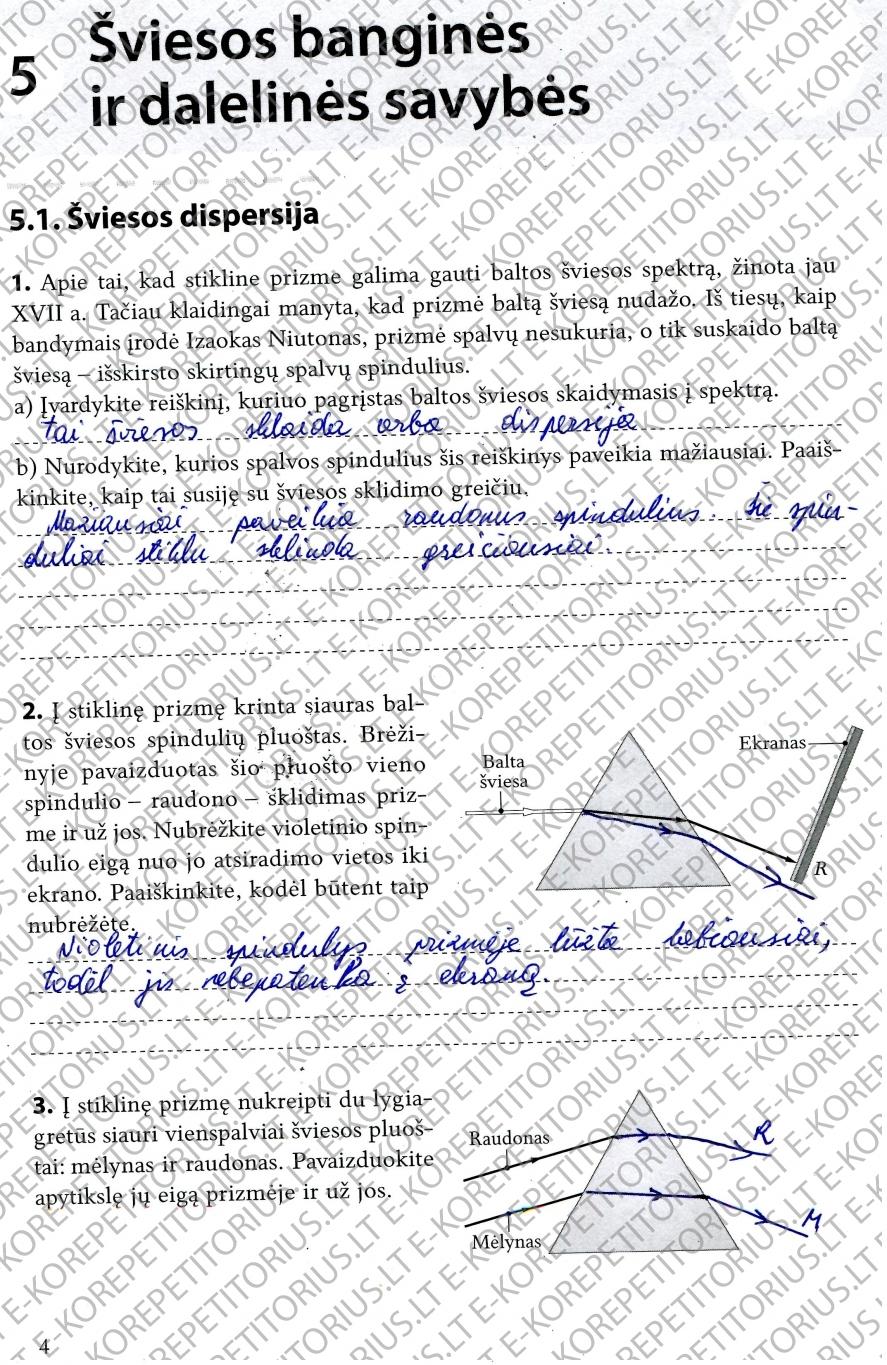 5
Šviesos banginės
ir dalelinės savybės
5.1. Šviesos dispersija
1. Apie tai, kad stikline prizme galima gauti baltos šviesos spektrą, žinota jau
XVII a. Tačiau klaidingai manyta, kad prizmė baltą šviesą nudažo. Iš tiesų, kaip
bandymais įrodė Izaokas Niutonas, prizmė spalvų nesukuria, o tik suskaido baltą
šviesą – išskirsto skirtingų spalvų spindulius.
a) Įvardykite reiškinį, kuriuo pagrįstas baltos šviesos skaidymasis į spektrą.
tai šviesos sklaida arba dispersija
b) Nurodykite, kurios spalvos spindulius šis reiškinys paveikia mažiausiai. Paaiš-
kinkite, kaip tai susiję su šviesos sklidimo greičiu.
Mažiausiai paveikia raudonus spindulius. šie spin-
duliai stiklu sklinda greičiausiai.
2. Į stiklinę prizmę krinta siauras bal-
tos šviesos spindulių pluoštas. Brėži-
nyje pavaizduotas šio pluošto vieno
spindulio – raudono – sklidimas priz-
me ir už jos. Nubrėžkite violetinio spin-
dulio eigą nuo jo atsiradimo vietos iki
ekrano. Paaiškinkite, kodėl būtent taip
nubrėžėte.
Balta
šviesa
Ekranas
R
Violetinis spindulys prizmėje lūžta labiausiai,
todėl jis nebepatenka į ekraną.
3. Į stiklinę prizmę nukreipti du lygia-
gretūs siauri vienspalviai šviesos pluoš-
tai: mėlynas ir raudonas. Pavaizduokite
apytikslę jų eigą prizmėje ir už jos.
Raudonas
R
Mėlynas
M
4
E-KOREPETITORIUS.LT